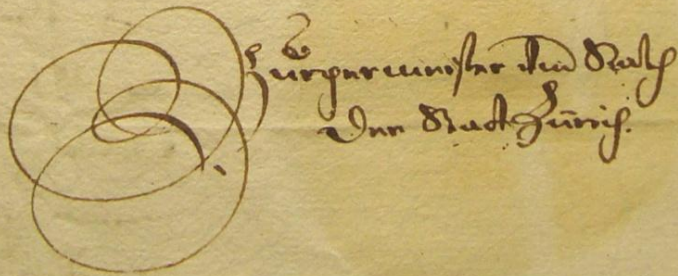 Burgermeister und Rath
Der Statt Zürich.